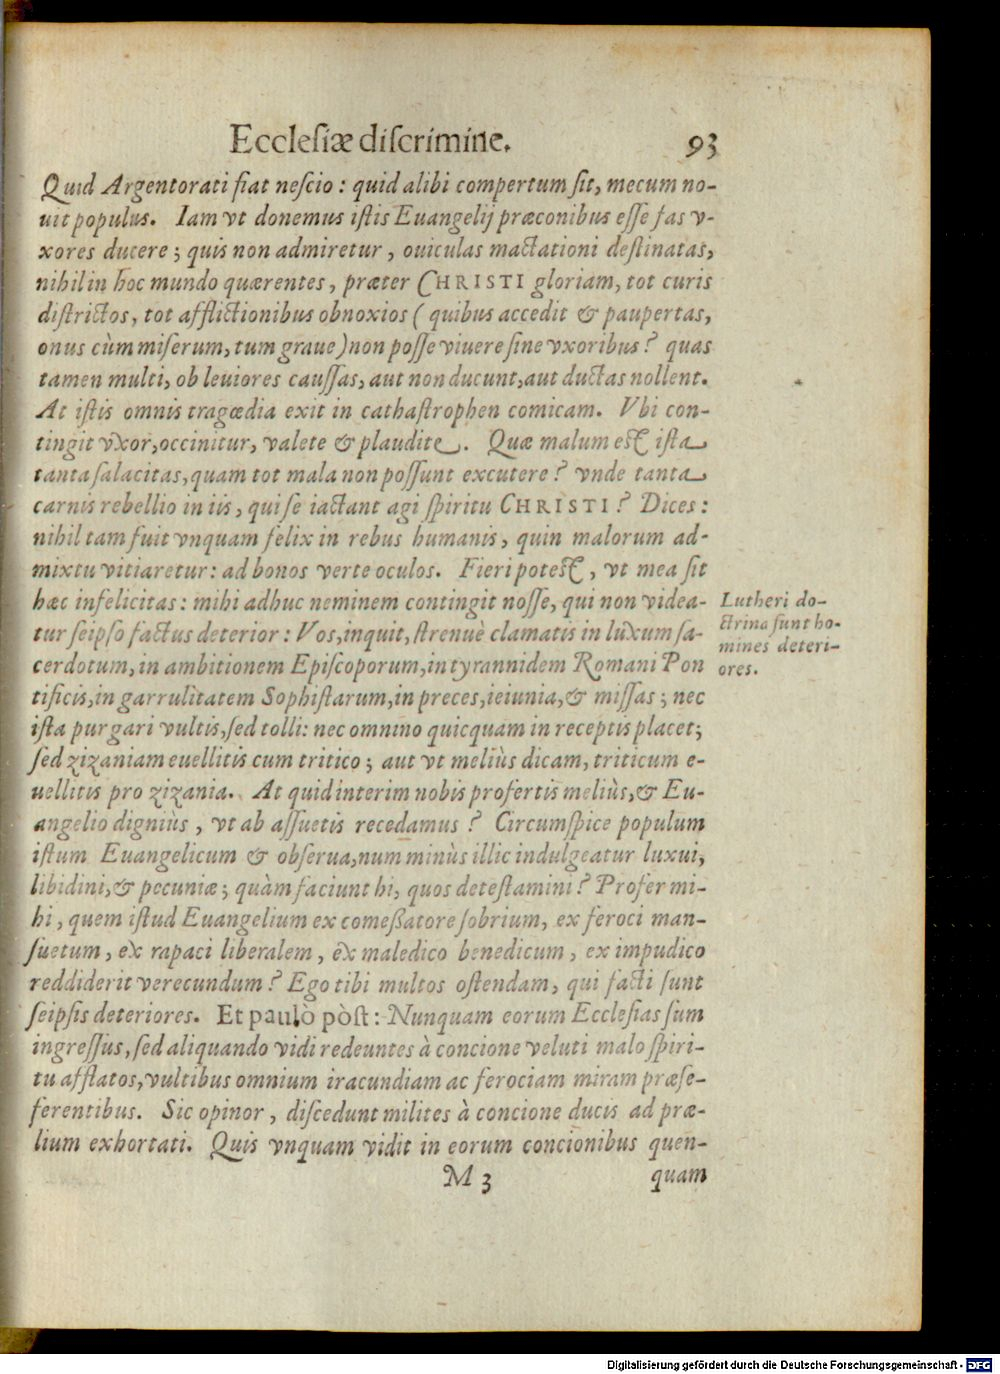 Ecclesiæ discrimine. 93
Quid Argentorati fiat nescio : quid alibi compertum sit, mecum no-
uit populus. Iam vt donemus istis Euangelij præconibus esse fas v-
xores ducere ; quis non admiretur , ouiculas mactationi destinatas,
nihil in hoc mundo quærentes, præter CHRISTI gloriam, tot curis
districtos, tot afflictionibus obnoxios ( quibus accedit & paupertas,
onus cùm miserum, tum graue) non posse viuere sine vxoribus? quas
tamen multi, ob leuiores caussas, aut non ducunt, aut ductas nollent.
At istis omnis tragœdia exit in cathastrophen comicam. Vbi con-
tingit vxor, occinitur, valete & plaudite. Quæ malum est ista
tanta salacitas, quam tot mala non possunt excutere? vnde tanta
carnis rebellio in iis, qui se iactant agi spiritu CHRISTI? Dices:
nihil tam fuit vnquam felix in rebus humanis, quin malorum ad-
mixtu vitiaretur: ad bonos verte oculos. Fieri potest, vt mea sit
hæc infelicitas: mihi adhuc neminem contingit nosse, qui non videa-
tur seipso factus deterior: Vos, inquit, strenuè clamatis in luxum sa-
cerdotum, in ambitionem Episcoporum, in tyrannidem Romani Pon
tificis, in garrulitatem Sophistarum, in preces, ieiunia, & missas ; nec
ista purgari vultis, sed tolli: nec omnino quicquam in receptis placet;
sed zizaniam euellitis cum tritico ; aut vt meliùs dicam, triticum e-
uellitis pro zizania. At quid interim nobis profertis meliùs, & Eu-
angelio digniùs , vt ab assuetis recedamus ? Circumspice populum
istum Euangelicum & obserua, num minùs illic indulgeatur luxui,
libidini, & pecuniæ; quàm faciunt hi, quos detestamini? Profer mi-
hi , quem istud Euangelium ex comeßatore sobrium, ex feroci man-
suetum, ex rapaci liberalem , ex maledico benedicum , ex impudico
reddiderit verecundum? Ego tibi multos ostendam, qui facti sunt
seipsis deteriores. Et paulò pòst: Nunquam eorum Ecclesias sum
ingressus, sed aliquando vidi redeuntes à concione veluti malo spiri-
tu afflatos, vultibus omnium iracundiam ac ferociam miram præse-
ferentibus. Sic opinor , discedunt milites à concione ducis ad præ-
lium exhortati. Quis vnquam vidit in eorum concionibus quen-
M 3 quam
Lutheri do-
ctrina sunt ho-
mines deteri-
ores.
Digitalisierung gefördert durch die Deutsche Forschungsgemeinschaft - DFG